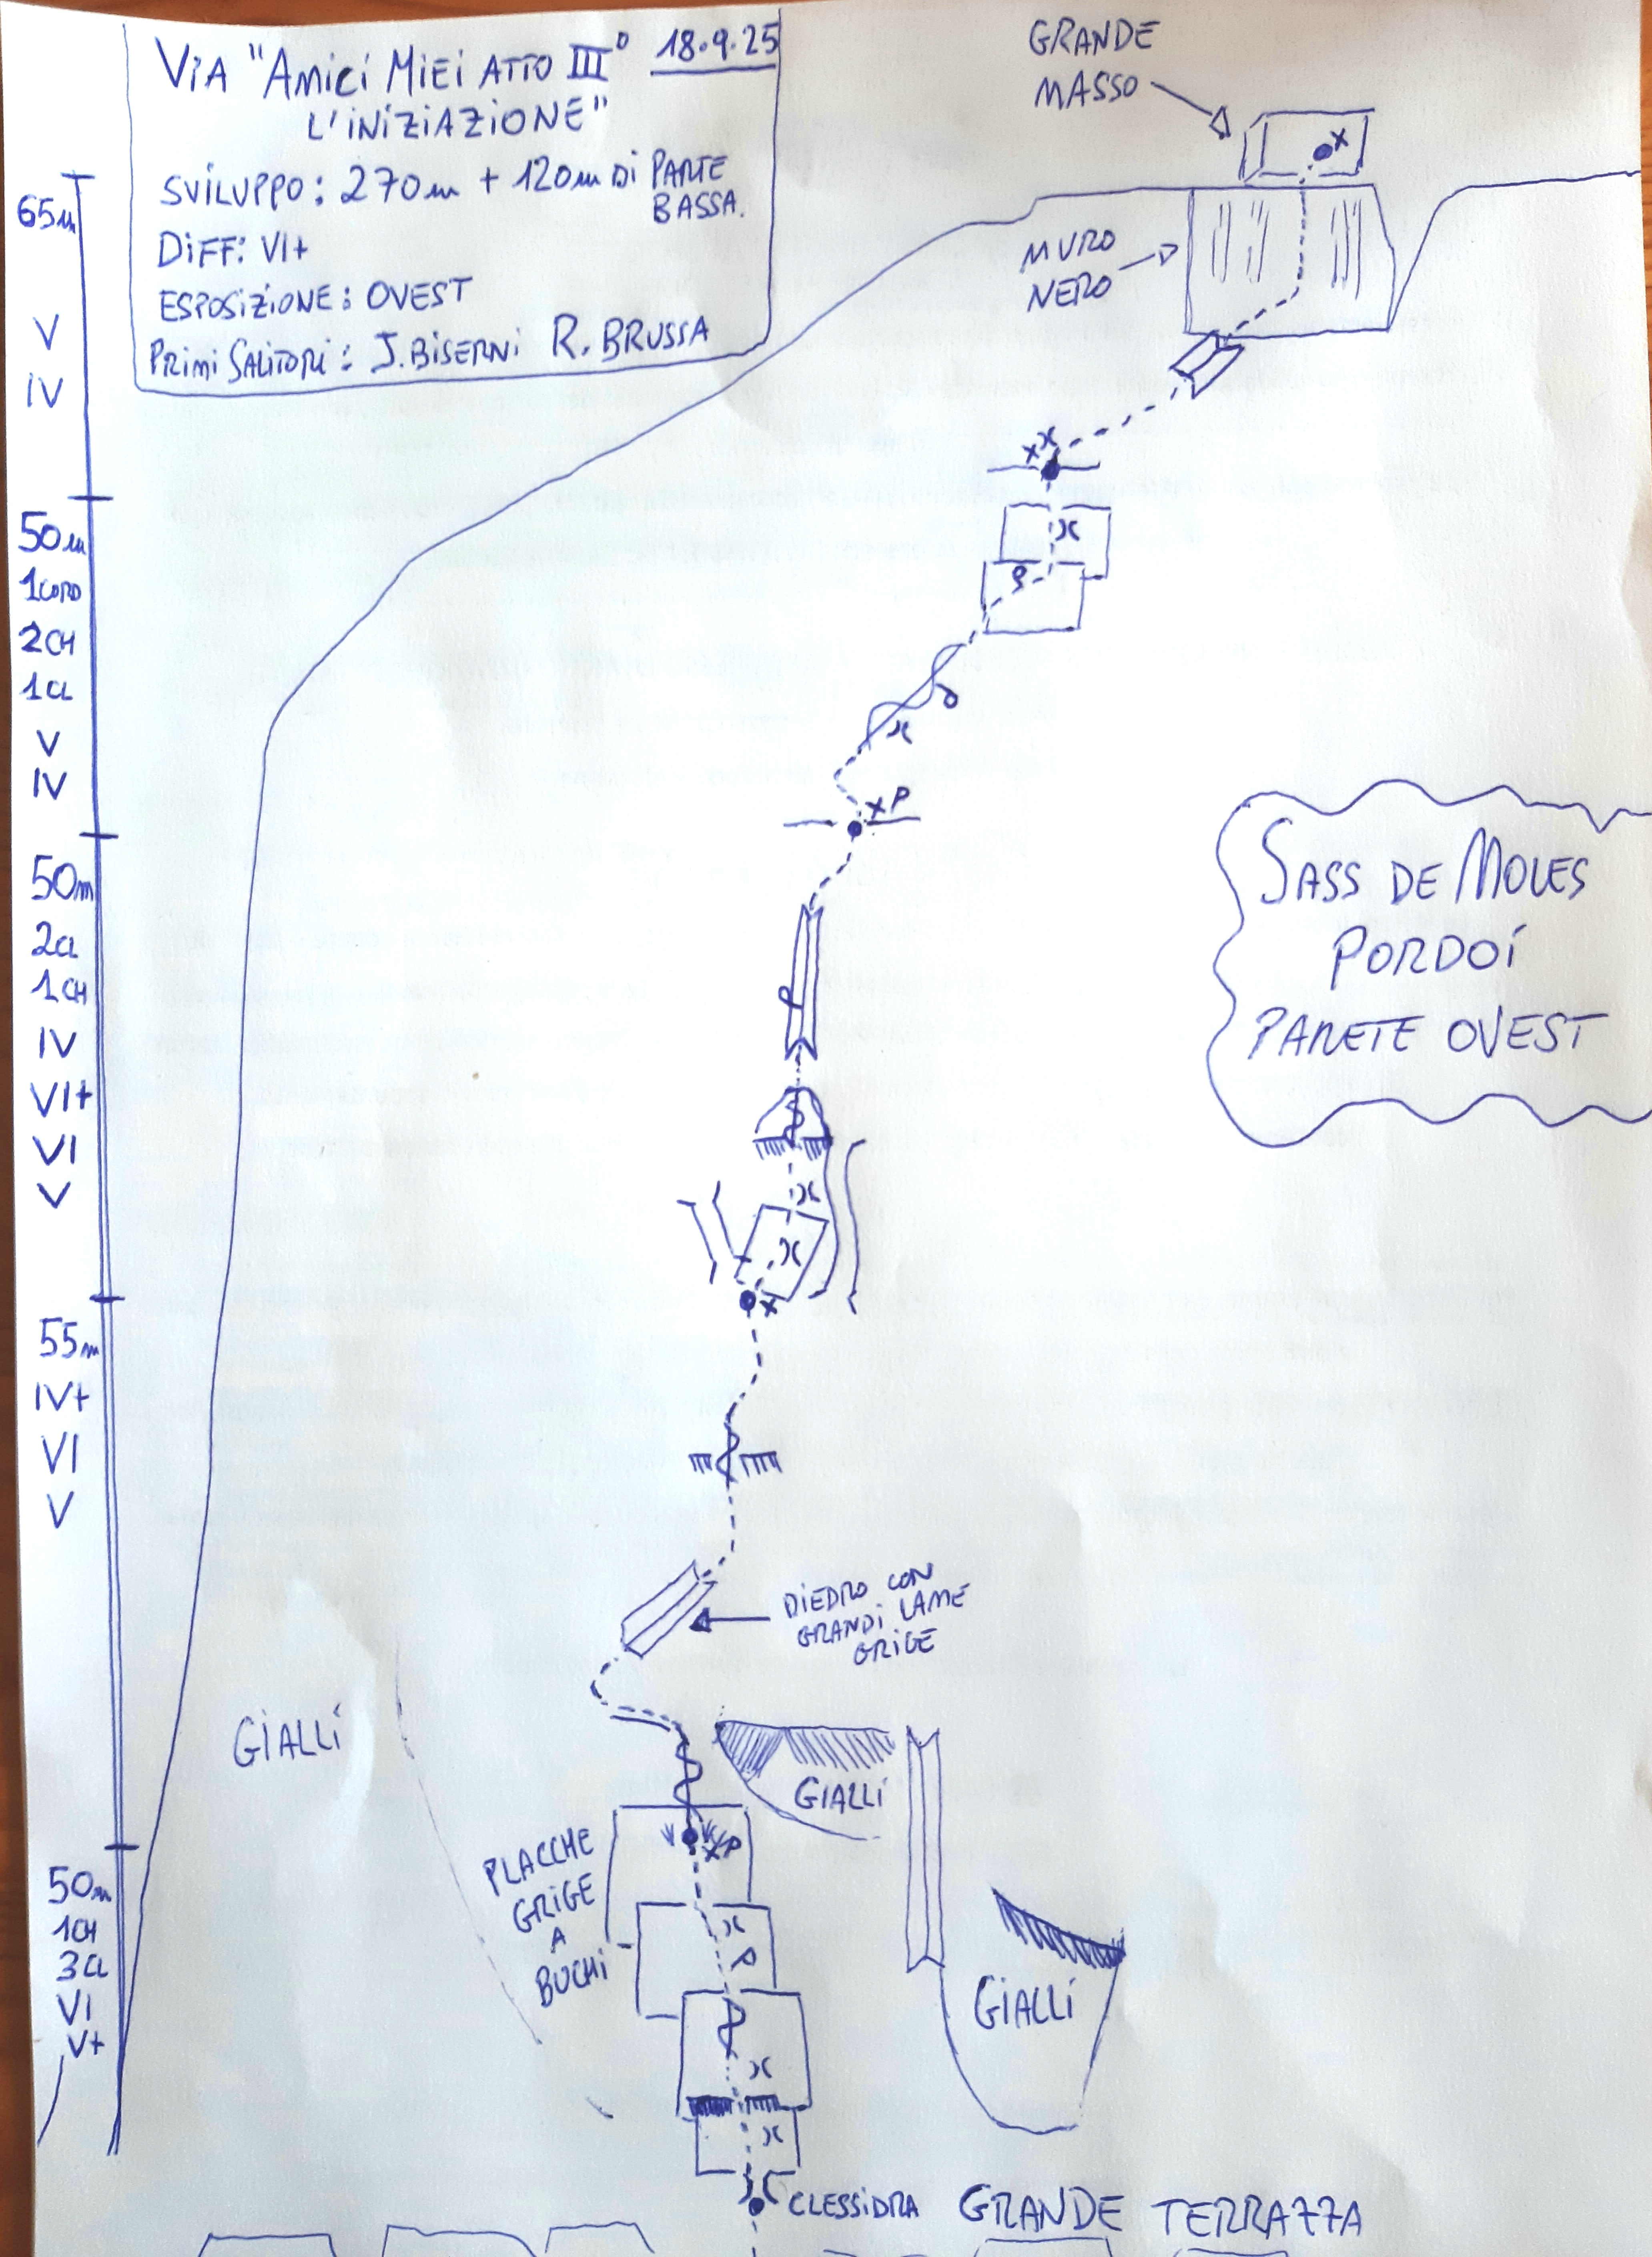 VIA "AMICI MIEI ATTO III° 18.9.25
L'INIZIAZIONE"
SVILUPPO: 270m + 120m DI PARTE
BASSA.
DIFF: VI+
ESPOSIZIONE: OVEST
PRIMI SALITORI: J. BISERNI R. BRUSSA
GRANDE
MASSO
MURO
NERO
65m
V
IV
50m
1CORD
2CH
1CL
V
IV
P
50m
2CL
1CH
IV
VI+
VI
V
SASS DE MOLES
PORDOÍ
PARETE OVEST
55m
IV+
VI
V
DIEDRO CON
GRANDI LAME
GRIGE
GIALLI
GIALLI
P
PLACCHE
GRIGE
A
BUCHI
50m
1CH
3CL
VI
V+
GIALLI
CLESSIDRA GRANDE TERRAZZA